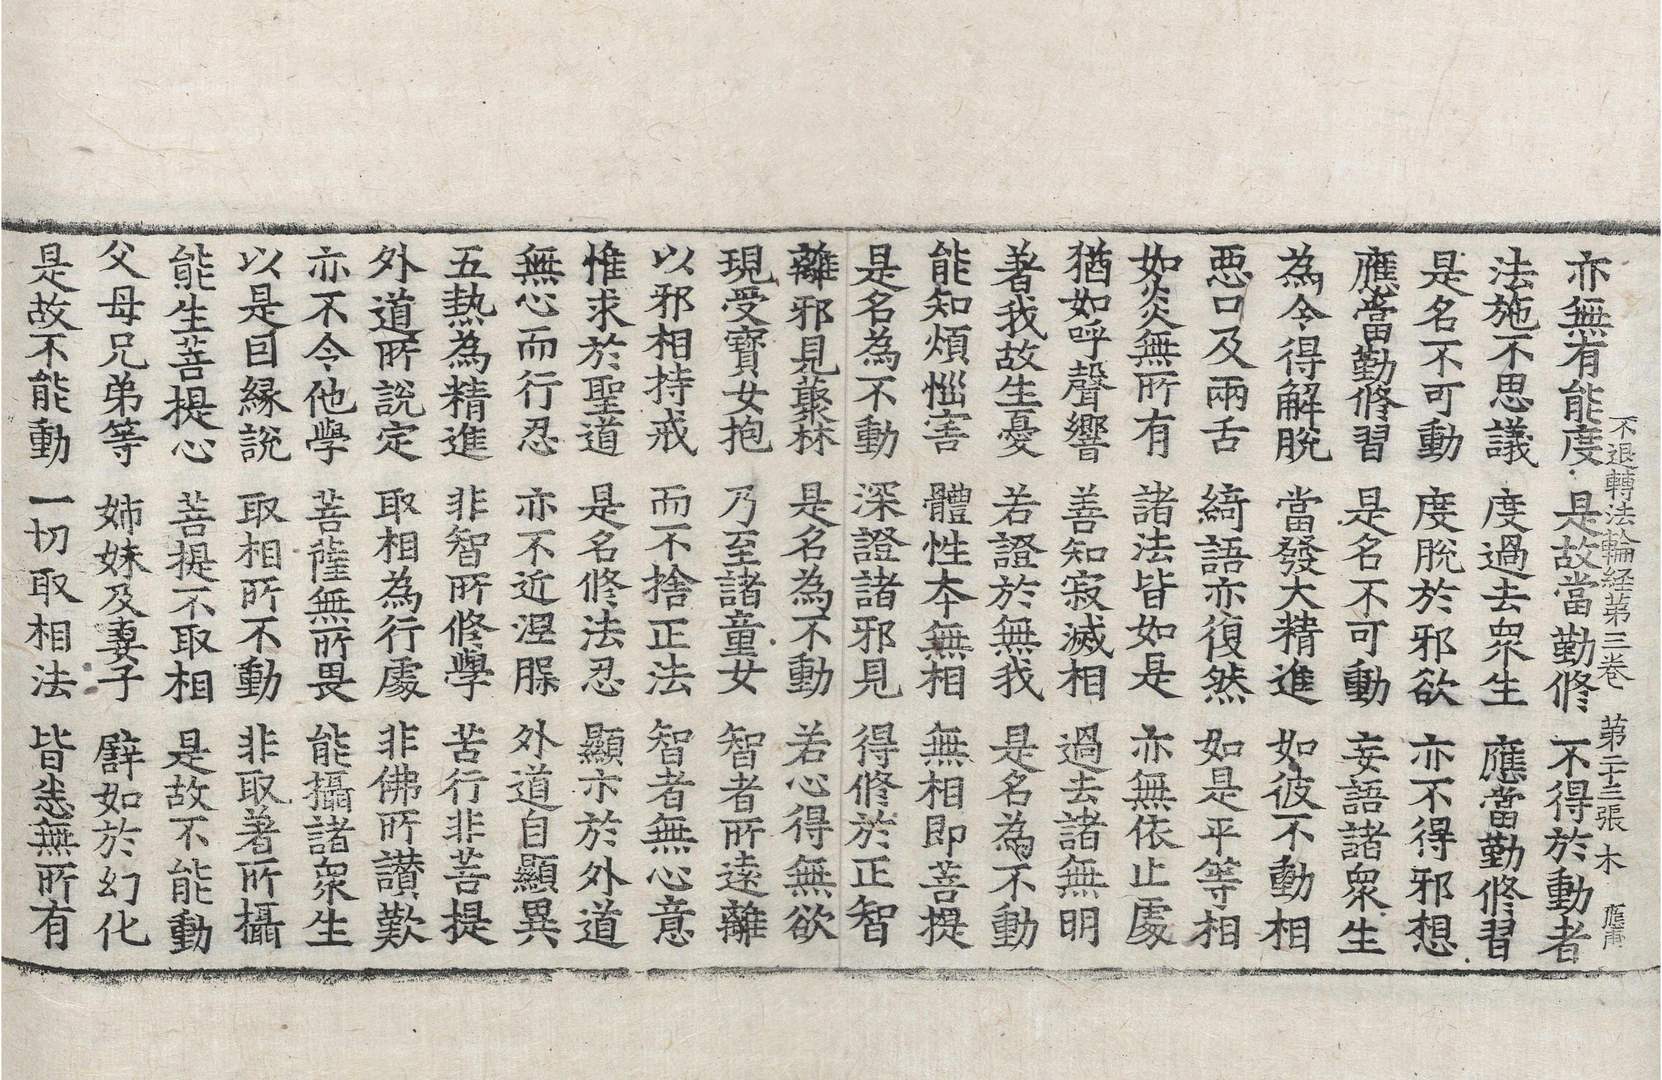 亦無有能度 是故當勤修 不得於動者
不退轉法輪経第三卷 第二十三張 木
法施不思議 度過去衆生 應當勤修習
是名不可動 度脫於邪欲 亦不得邪想
應當勤修習 是名不可動 妄語諸衆生
為令得解脫 當發大精進 如彼不動相
悪口及兩舌 綺語亦復然 如是平等相
如炎無所有 諸法皆如是 亦無依止處
猶如呼聲響 善知寂滅相 過去諸無明
著我故生憂 若證於無我 是名為不動
能知煩惱害 體性本無相 無相即菩提
是名為不動 深證諸邪見 得修於正智
離邪見藂林 是名為不動 若心得無欲
現受寶女抱 乃至諸童女 智者所遠離
以邪相持戒 而不捨正法 智者無心意
惟求於聖道 是名修法忍 顯亦於外道
無心而行忍 亦不近涅脲 外道自顯異
五熱為精進 非智所修學 苦行非菩提
外道所說定 取相為行處 非佛所讃歎
亦不令他學 菩薩無所畏 能攝諸衆生
以是因緣說 取相所不動 非取著所攝
能生菩提心 菩提不取相 是故不能動
父母兄弟等 姉妹及妻子 譬如於幻化
是故不能動 一切取相法 皆悉無所有